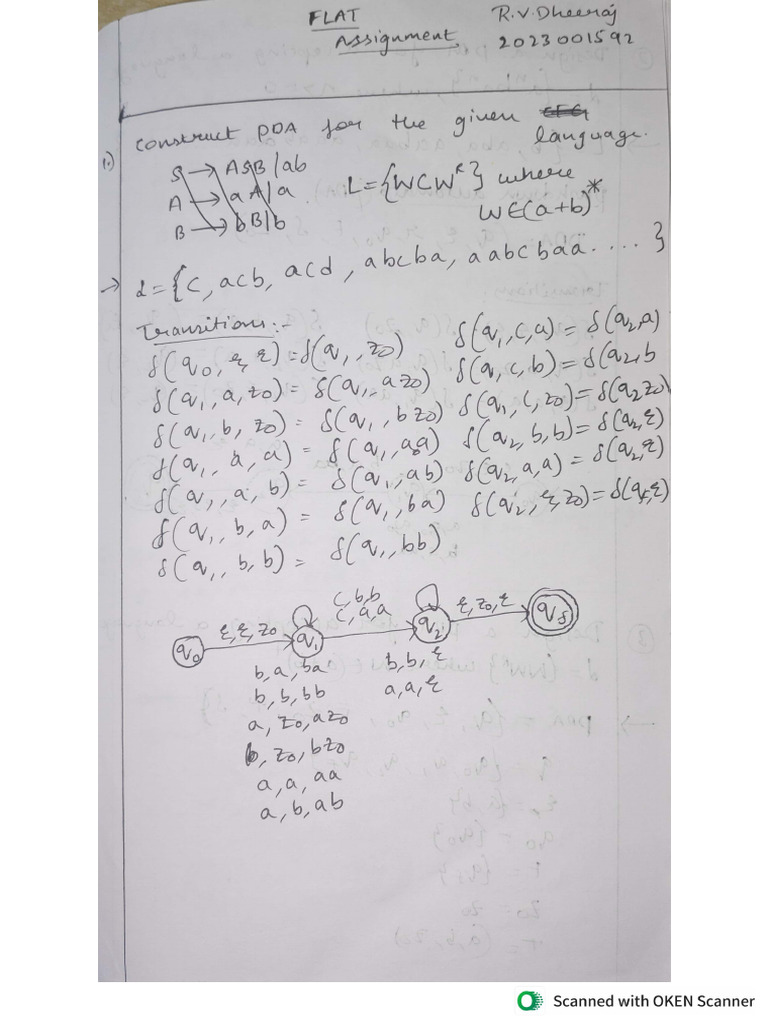 FLAT
Assignment
R.V.Dheeraj
2023001592
1.) construct PDA for the given CFG language.
S → ASB | ab
A → aA | a
B → bB | b
L = {WCW^R} where
W∈(a+b)*
→ L = {C, acb, acd, abcba, aabcbaa....}
Transitions:-
δ(q0, ε, ε) = δ(q1, z0)
δ(q1, a, z0) = δ(q1, az0)
δ(q1, b, z0) = δ(q1, bz0)
δ(q1, a, a) = δ(q1, aa)
δ(q1, a, b) = δ(q1, ab)
δ(q1, b, a) = δ(q1, ba)
δ(q1, b, b) = δ(q1, bb)
δ(q1, c, a) = δ(q2, a)
δ(q1, c, b) = δ(q2, b
δ(q1, c, z0) = δ(q2 z0)
δ(q2, b, b) = δ(q2, ε)
δ(q2, a, a) = δ(q2, ε)
δ(q2, ε, z0) = δ(qf, ε)
q0
ε, ε, z0
q1
c, b, b
c, a, a
q2
ε, z0, ε
qf
b, a, ba
b, b, bb
a, z0, az0
b, z0, bz0
a, a, aa
a, b, ab
b, b, ε
a, a, ε
Scanned with OKEN Scanner